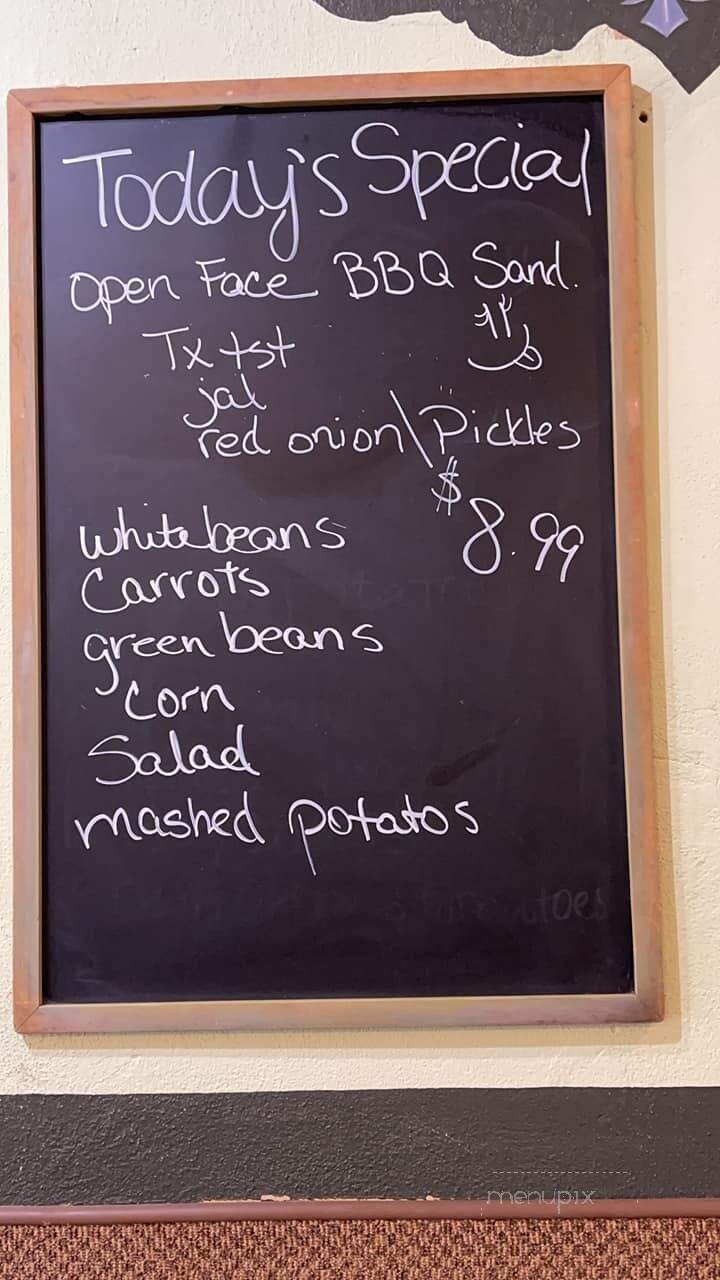 Today's Special
Open Face BBQ Sand.
Tx tst
jal
red onion\Pickles
$8.99
white beans
Carrots
green beans
Corn
Salad
mashed potatos
menupix